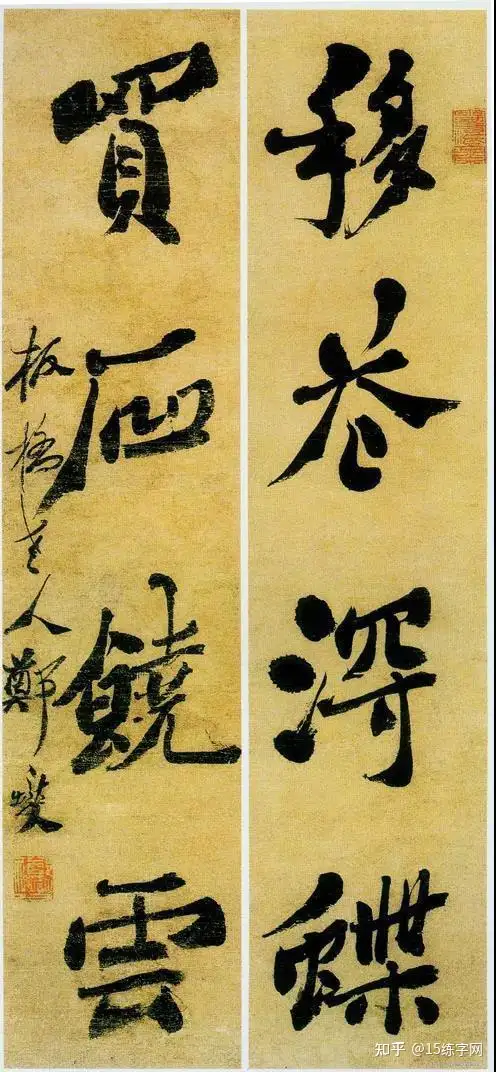 移花得蝶
買石饒雲
板橋老人鄭燮
知乎 @15练字网